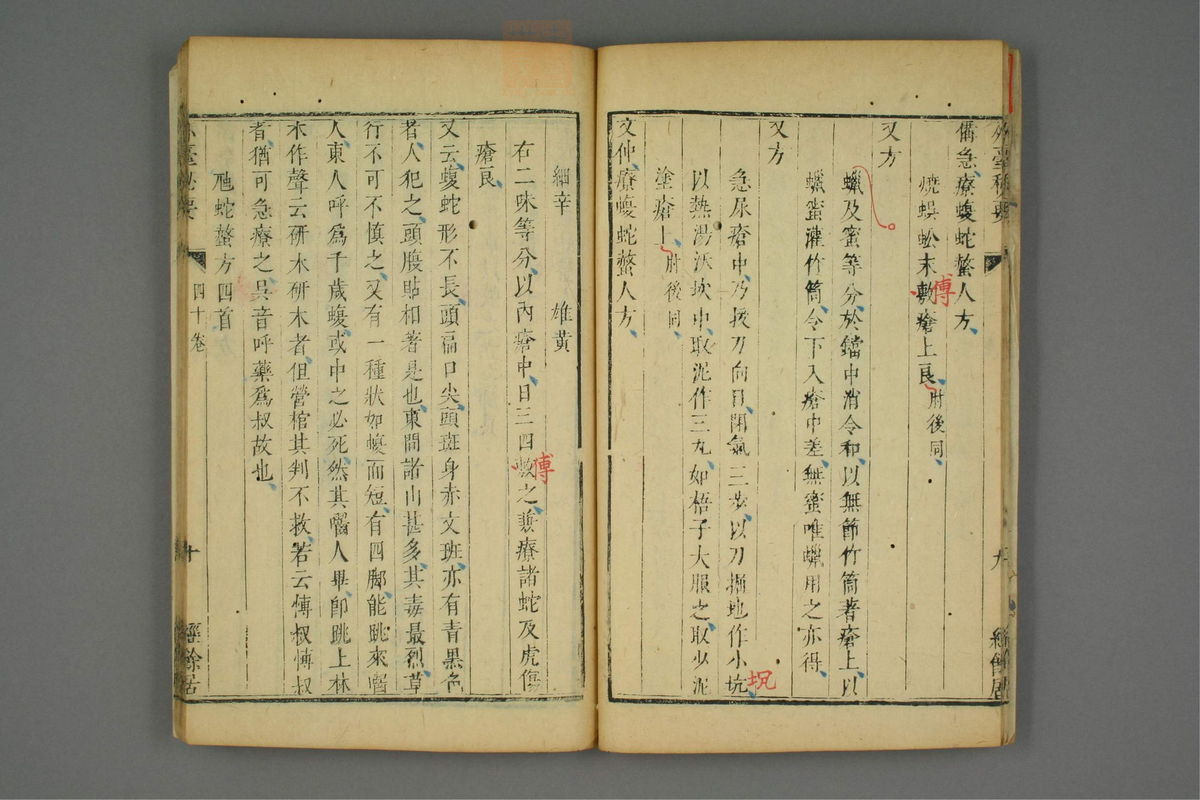 外臺秘要
九
經餘居
備急療蝮蛇螫人方
燒蜈蚣末敷瘡上良肘後同
傅
又方
蠟及蜜等分於鐺中消令和以無節竹筒著瘡上以
蠟蜜灌竹筒令下入瘡中差無蜜唯蠟用之亦得
又方
急尿瘡中乃拔刀向日閉氣三步以刀掘地作小坑
坭
以熱湯沃坎中取泥作三丸如梧子大服之取少泥
塗瘡上肘後同
文仲療蝮蛇螫人方
細辛 雄黃
右二味等分以內瘡中日三四敷之兼療諸蛇及虎傷
傅
瘡良
又云蝮蛇形不長頭扁口尖頭斑身赤文班亦有青黑色
者人犯之頭腹貼相著是也東間諸山甚多其毒最烈草
行不可不慎之又有一種狀如蝮而短有四脚能跳來嚙
人東人呼爲千歲蝮或中之必死然其嚙人畢卽跳上林
木作聲云斫木斫木者但營棺其判不救若云慱叔慱叔
者猶可急療之吳音呼藥爲叔故也
虺蛇螫方四首
外臺秘要
四十卷
十
經餘居